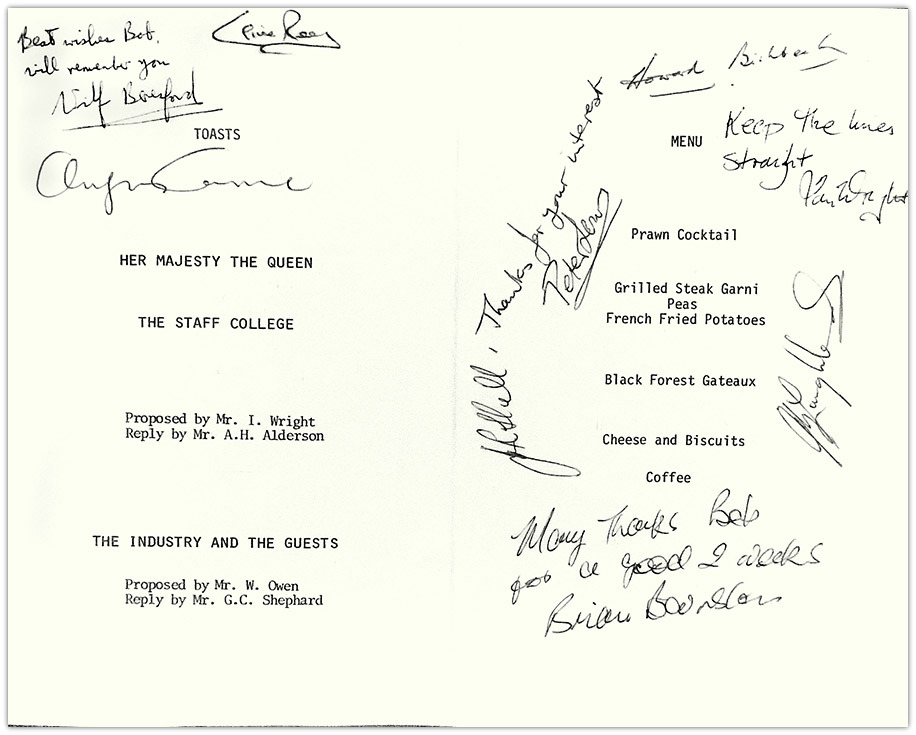 Best wishes Bob,
will remember you
Wilf Beresford
TOASTS
HER MAJESTY THE QUEEN
THE STAFF COLLEGE
Proposed by Mr. I. Wright
Reply by Mr. A.H. Alderson
THE INDUSTRY AND THE GUESTS
Proposed by Mr. W. Owen
Reply by Mr. G.C. Shephard
Howard
MENU
Keep the lines
straight
Ian Wright
Thanks for your interest
Peter
Prawn Cocktail
Grilled Steak Garni
Peas
French Fried Potatoes
Black Forest Gateaux
Cheese and Biscuits
Coffee
Many Thanks Bob
for a good 2 weeks
Brian